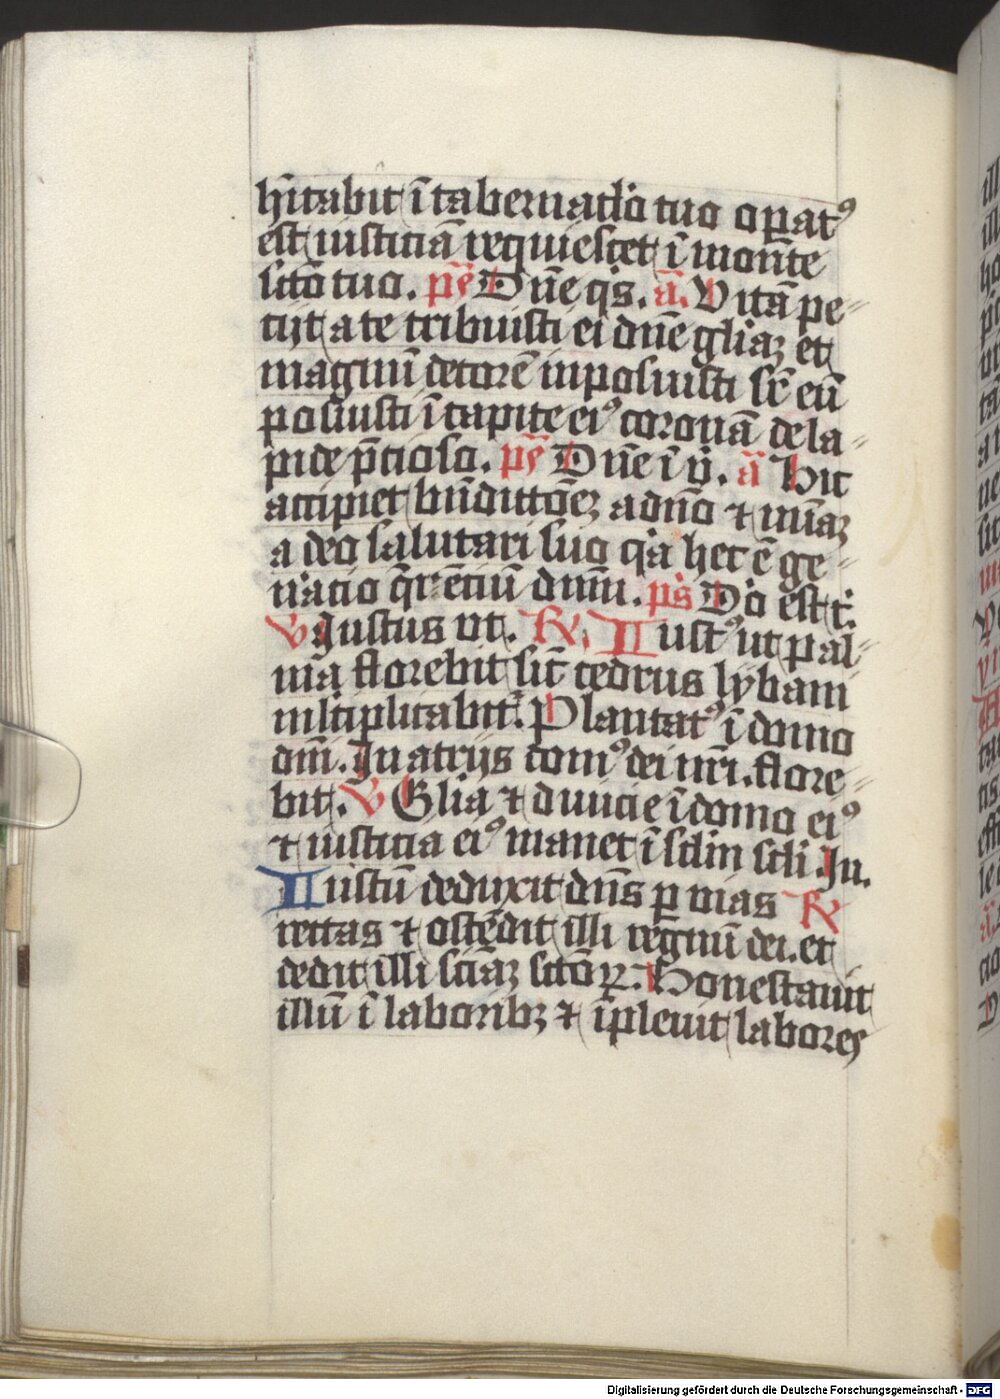 hītabit ī tabernaclo tuo opat⁹
est iusticiā requiescet ī monte
scō tuo. ps̄ Dn̄e qͥs. a͞. Vitā pe
tijt a te tribuisti ei dn̄e gliaʒ et
magnū decorē inposuisti sꝑ eū
posuisti ī capite ei⁹ coronā de la
pide p̄cioso. ps̄ Dn̄e ī v̇. a͞ Hic
accipiet bn̄dictōeʒ a dn̄o ⁊ mīaʒ
a deo salutari suo qͥa hec ē ge
n̄acio q̄rēciū dn̄m. ps̄ Dn̄ī est t͛.
V̷ Justus ut. R̷. Iust⁹ ut pal
ma florebit sic̄ cedrus lybani
mltiplicabit͛. Plantat⁹ ī domo
dn̄ī. In atrijs dom⁹ dei nr̄i. flore
bit. V̷ Glia ⁊ diuicie ī domo ei⁹
⁊ iusticia ei⁹ manet ī sclm̄ scli. In.
Iustū deduxit dn̄s ꝑ vias R̷
rectas ⁊ ostēdit illi regnū dei. et
dedit illi sciaʒ scōꝝ. Honestauit
illū ī laboribʒ ⁊ ipleuit labores
Digitalisierung gefördert durch die Deutsche Forschungsgemeinschaft - DFG